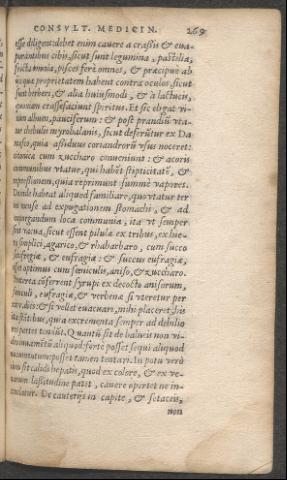 CONSVLT. MEDICIN. 269
esse diligent: debet enim cauere a crassis & eua-
porantibus cibis, sicut sunt legumina, pastilia,
fricta omnia, pisces ferè omnes, & præcipuè ab
proprietatem habent contra oculos, sicut
sunt herberi, & alia huiusmodi, & à lactucis,
quoniam crassefaciunt spiritus. Et sic eligat vi-
num album, pauciferum: & post prandiũ vta-
tur chibulis myrobalanis, sicut deferũtur ex Da-
masco, quia assiduus coriandrorũ vsus noceret:
cum zuccharo conueniunt: & acoris
omnibus vtatur, qui habẽt stipticitatẽ, &
expressionem, quia reprimunt summè vapores.
Donde habeat aliquod familiare, quo vtatur ter
in mense ad expugationem stomachi, & ad
expurgandum loca communia, ita vt semper
sint vacua, sicut essent pilulæ ex tribus, ex hie-
ra simplici, agarico, & rhabarbaro, cum succo
eufragiæ, & eufragia: & succus eufragiæ,
esse optimus cum fœniculis, aniso, & zuccharo.
conferent syrupi ex decocto anisorum,
fœniculi, eufragiæ, & verbenæ si veretur per
& si vellet euacuari, mihi placeret his
vti stitibus, quia excrementa semper ad debilio
res partes tendũt. Quantũ sit de balneis non vi-
aliquod fortè posset sequi aliquod
nocumentum: posset tamen tentari. In potu verò
sit calida hepatis, quod ex colore, & ex ve-
narum lassitudine patet, cauere oportet ne in-
De cauterijs in capite, & setaceis,
non